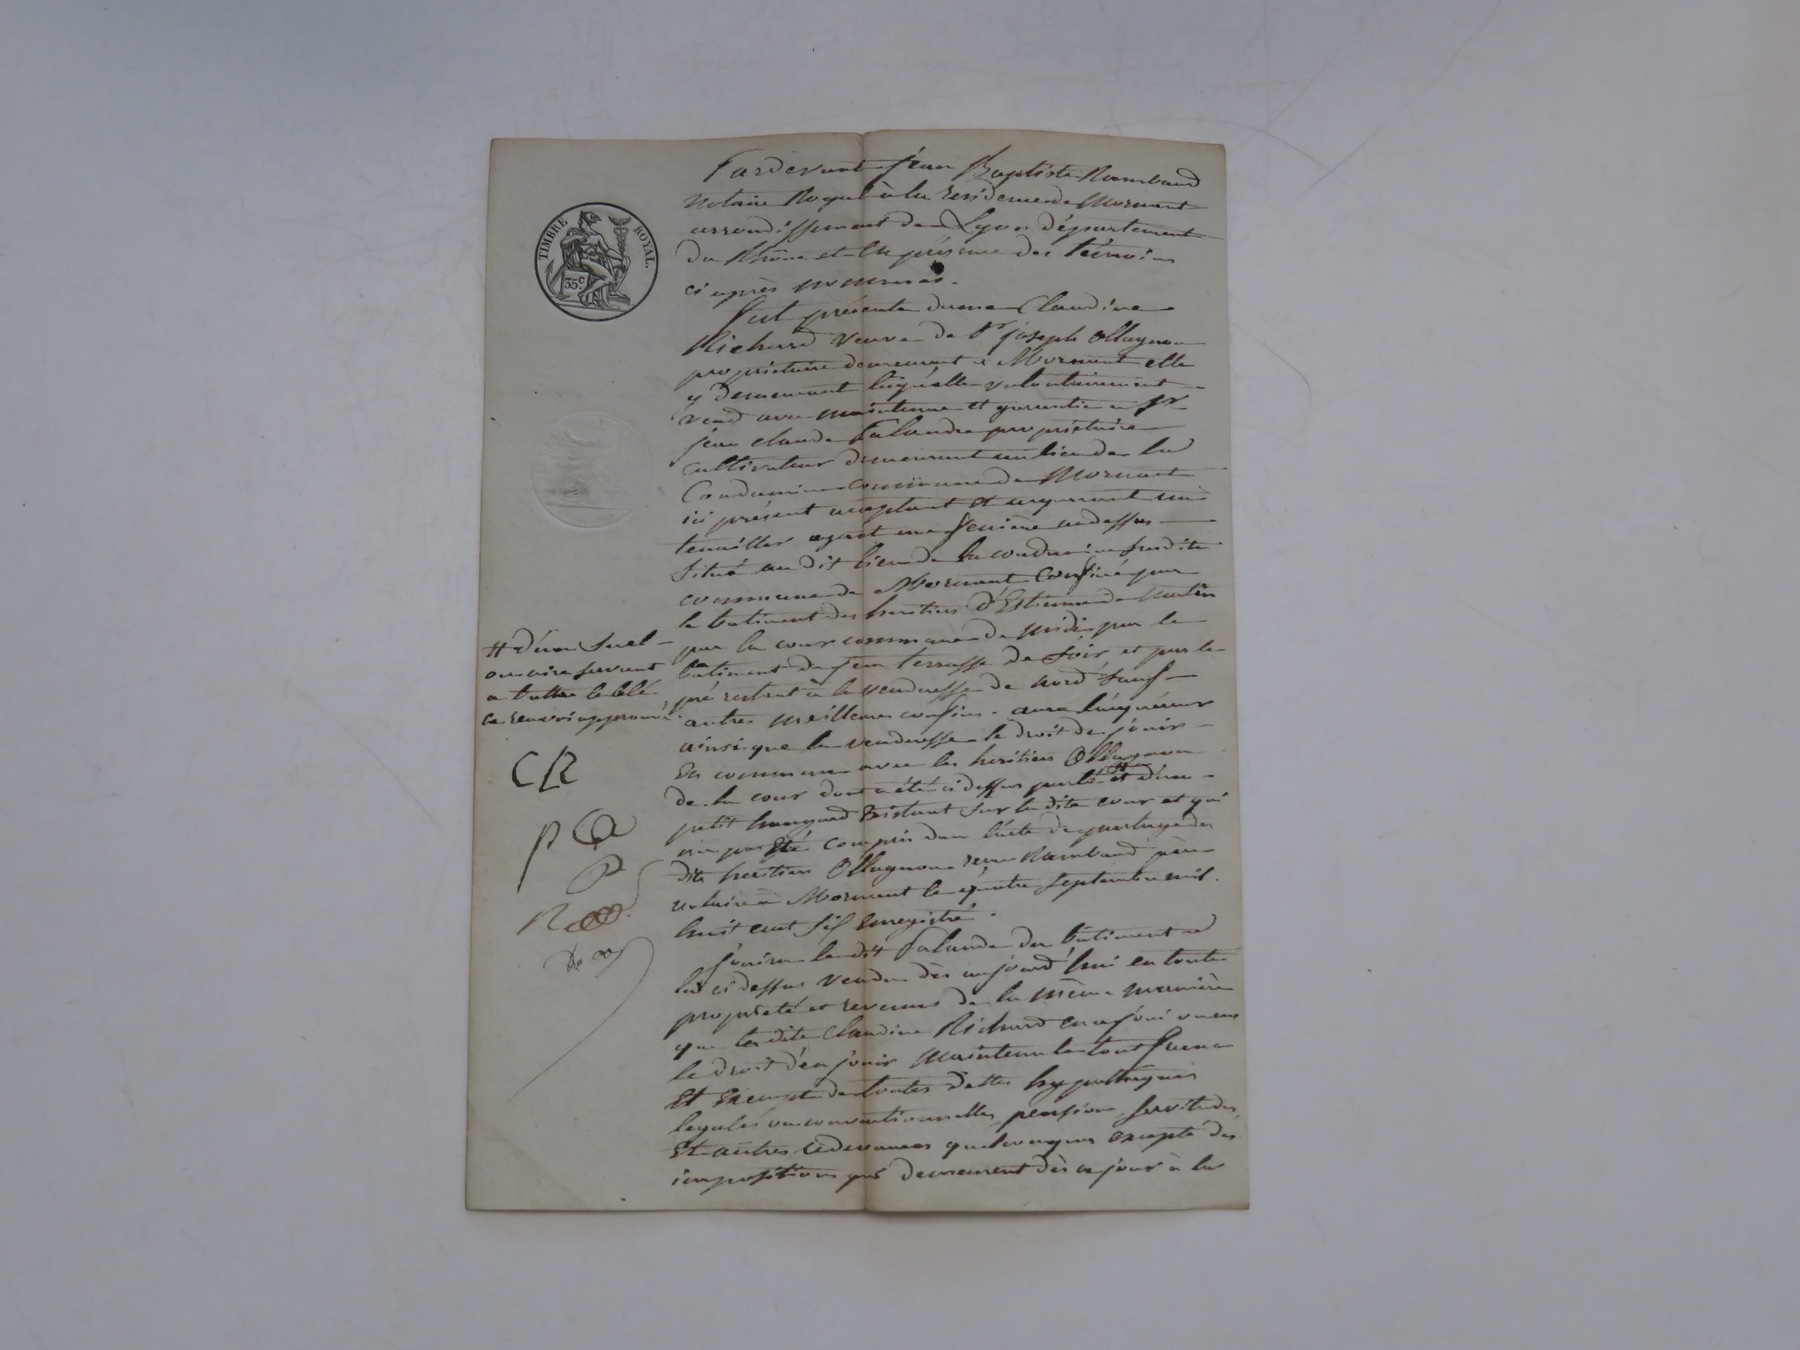 TIMBRE ROYAL.
35c
Pardevant Jean Baptiste Rambaud
Notaire Royal à la residence de Mornant
arrondissement de Lyon département
du Rhône et en présence des témoins
ci après nommés.
Fut présente dame Claudine
Richard veuve de Sr joseph Ollagnon
propriétaire demeurant à Mornant elle
y demeurant laquelle volontairement
vend avec maintenue et garantie à Sr
jean claude Palandre propriétaire
cultivateur demeurant au lieu de la
Condamine commune de Mornant
ici présent acceptant et acquerant un
tenailler ayant une feniere au dessus
situé au dit lieu de la condamine susdite
commune de Mornant Confiné par
le batiment des heritiers d'Estienne de matin
par la cour commune de midi par le
batiment de jean terrasse de soir et par le
pré restant à la venderesse de nord sauf
autres meilleurs confins. aura l'acquéreur
ainsi que la venderesse le droit de jouir
en commun avec les heritiers Ollagnon
de la cour dont a été ci dessus parlé # et d'un
petit hangard existant sur la dite cour et qui
n'a pas été compris dans l'acte de partage des
dits heritiers Ollagnon reçu Rambaud père
notaire à Mornant le quatre septembre mil
huit cent six enregistré.
# d'un suel
ou aire servant
a battre le blé
ce renvoi approuvé
CR
jouira le dit Palandre du batiment a
lui ci dessus vendu dès aujourd'hui en toute
propriété et revenus de la même manière
que ladite Claudine Richard en a joui ou eu
le droit d'en jouir maintenu le tout franc
Et Exempt de toutes dettes hypothèques
legales ou conventionnelles, pension, servitudes,
Et autres redevances quelconques excepté des
impositions qui demeurent dès ce jour à la